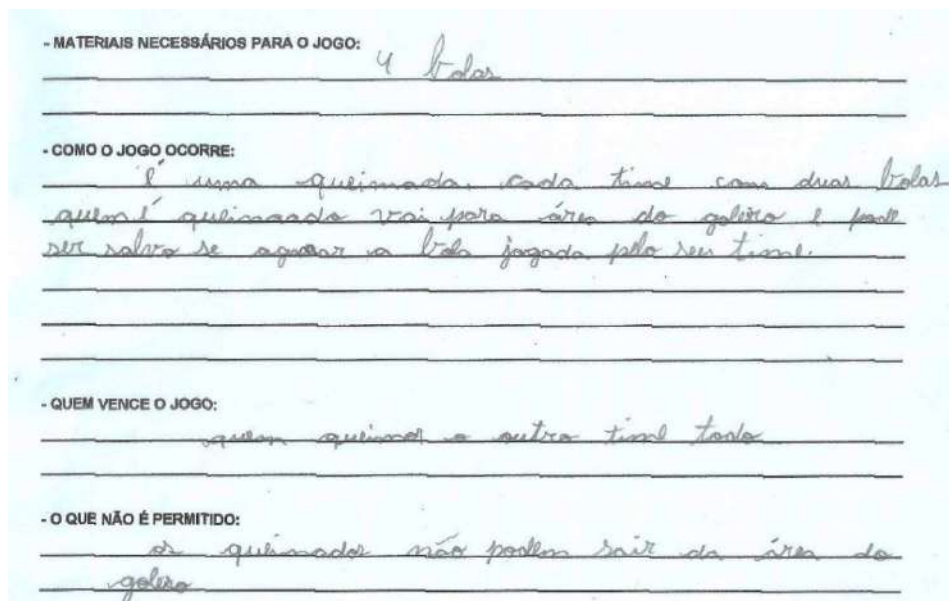 - MATERIAIS NECESSÁRIOS PARA O JOGO:
4 bolas
- COMO O JOGO OCORRE:
é uma queimada. cada time com duas bolas
quem é queimado vai para área do golero e pode
ser salvo se agarar a bola jogada pelo seu time.
- QUEM VENCE O JOGO:
quem queimar o outro time todo
- O QUE NÃO É PERMITIDO:
os queimados não podem sair da área do
golero